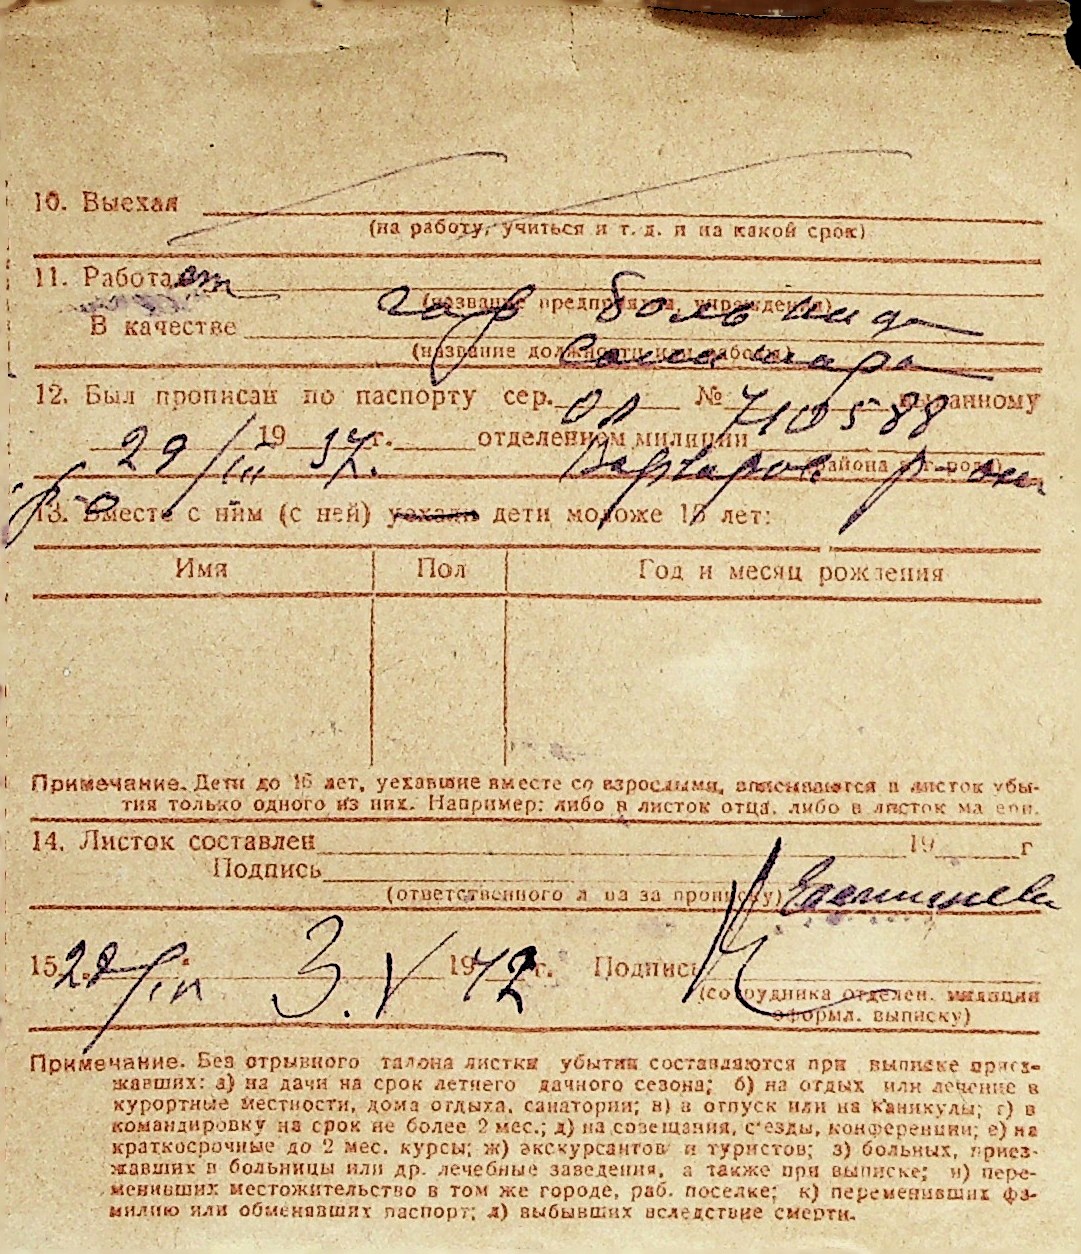 10. Выехал
(на работу, учиться и т. д. и на какой срок)
11. Работает
(название предприятия, учреждения)
гор больница
В качестве
(название должности или работы)
Санитара
12. Был прописан по паспорту сер. ОЛ № 710588 выданному
29/III 1937г. отделением милиции
(района, города)
р-она
13. Вместе с ним (с ней) уехали дети моложе 15 лет:
Имя Пол Год и месяц рождения
Примечание. Дети до 16 лет, уехавшие вместе со взрослыми, вписываются в листок убы-
тия только одного из них. Например: либо в листок отца, либо в листок матери.
14. Листок составлен 19 г
Подпись
(ответственного лица за прописку)
15. 3.V 1942г. Подпись
(сотрудника отделен. милиции
оформл. выписку)
Примечание. Без отрывного талона листки убытия составляются при выписке приез-
жавших: а) на дачи на срок летнего дачного сезона; б) на отдых или лечение в
курортные местности, дома отдыха, санатории; в) в отпуск или на каникулы; г) в
командировку на срок не более 2 мес.; д) на совещания, с'езды, конференции; е) на
краткосрочные до 2 мес. курсы; ж) экскурсантов и туристов; з) больных, приез-
жавших в больницы или др. лечебные заведения, а также при выписке; и) пере-
менивших местожительство в том же городе, раб. поселке; к) переменивших фа-
милию или обменявших паспорт; л) выбывших вследствие смерти.